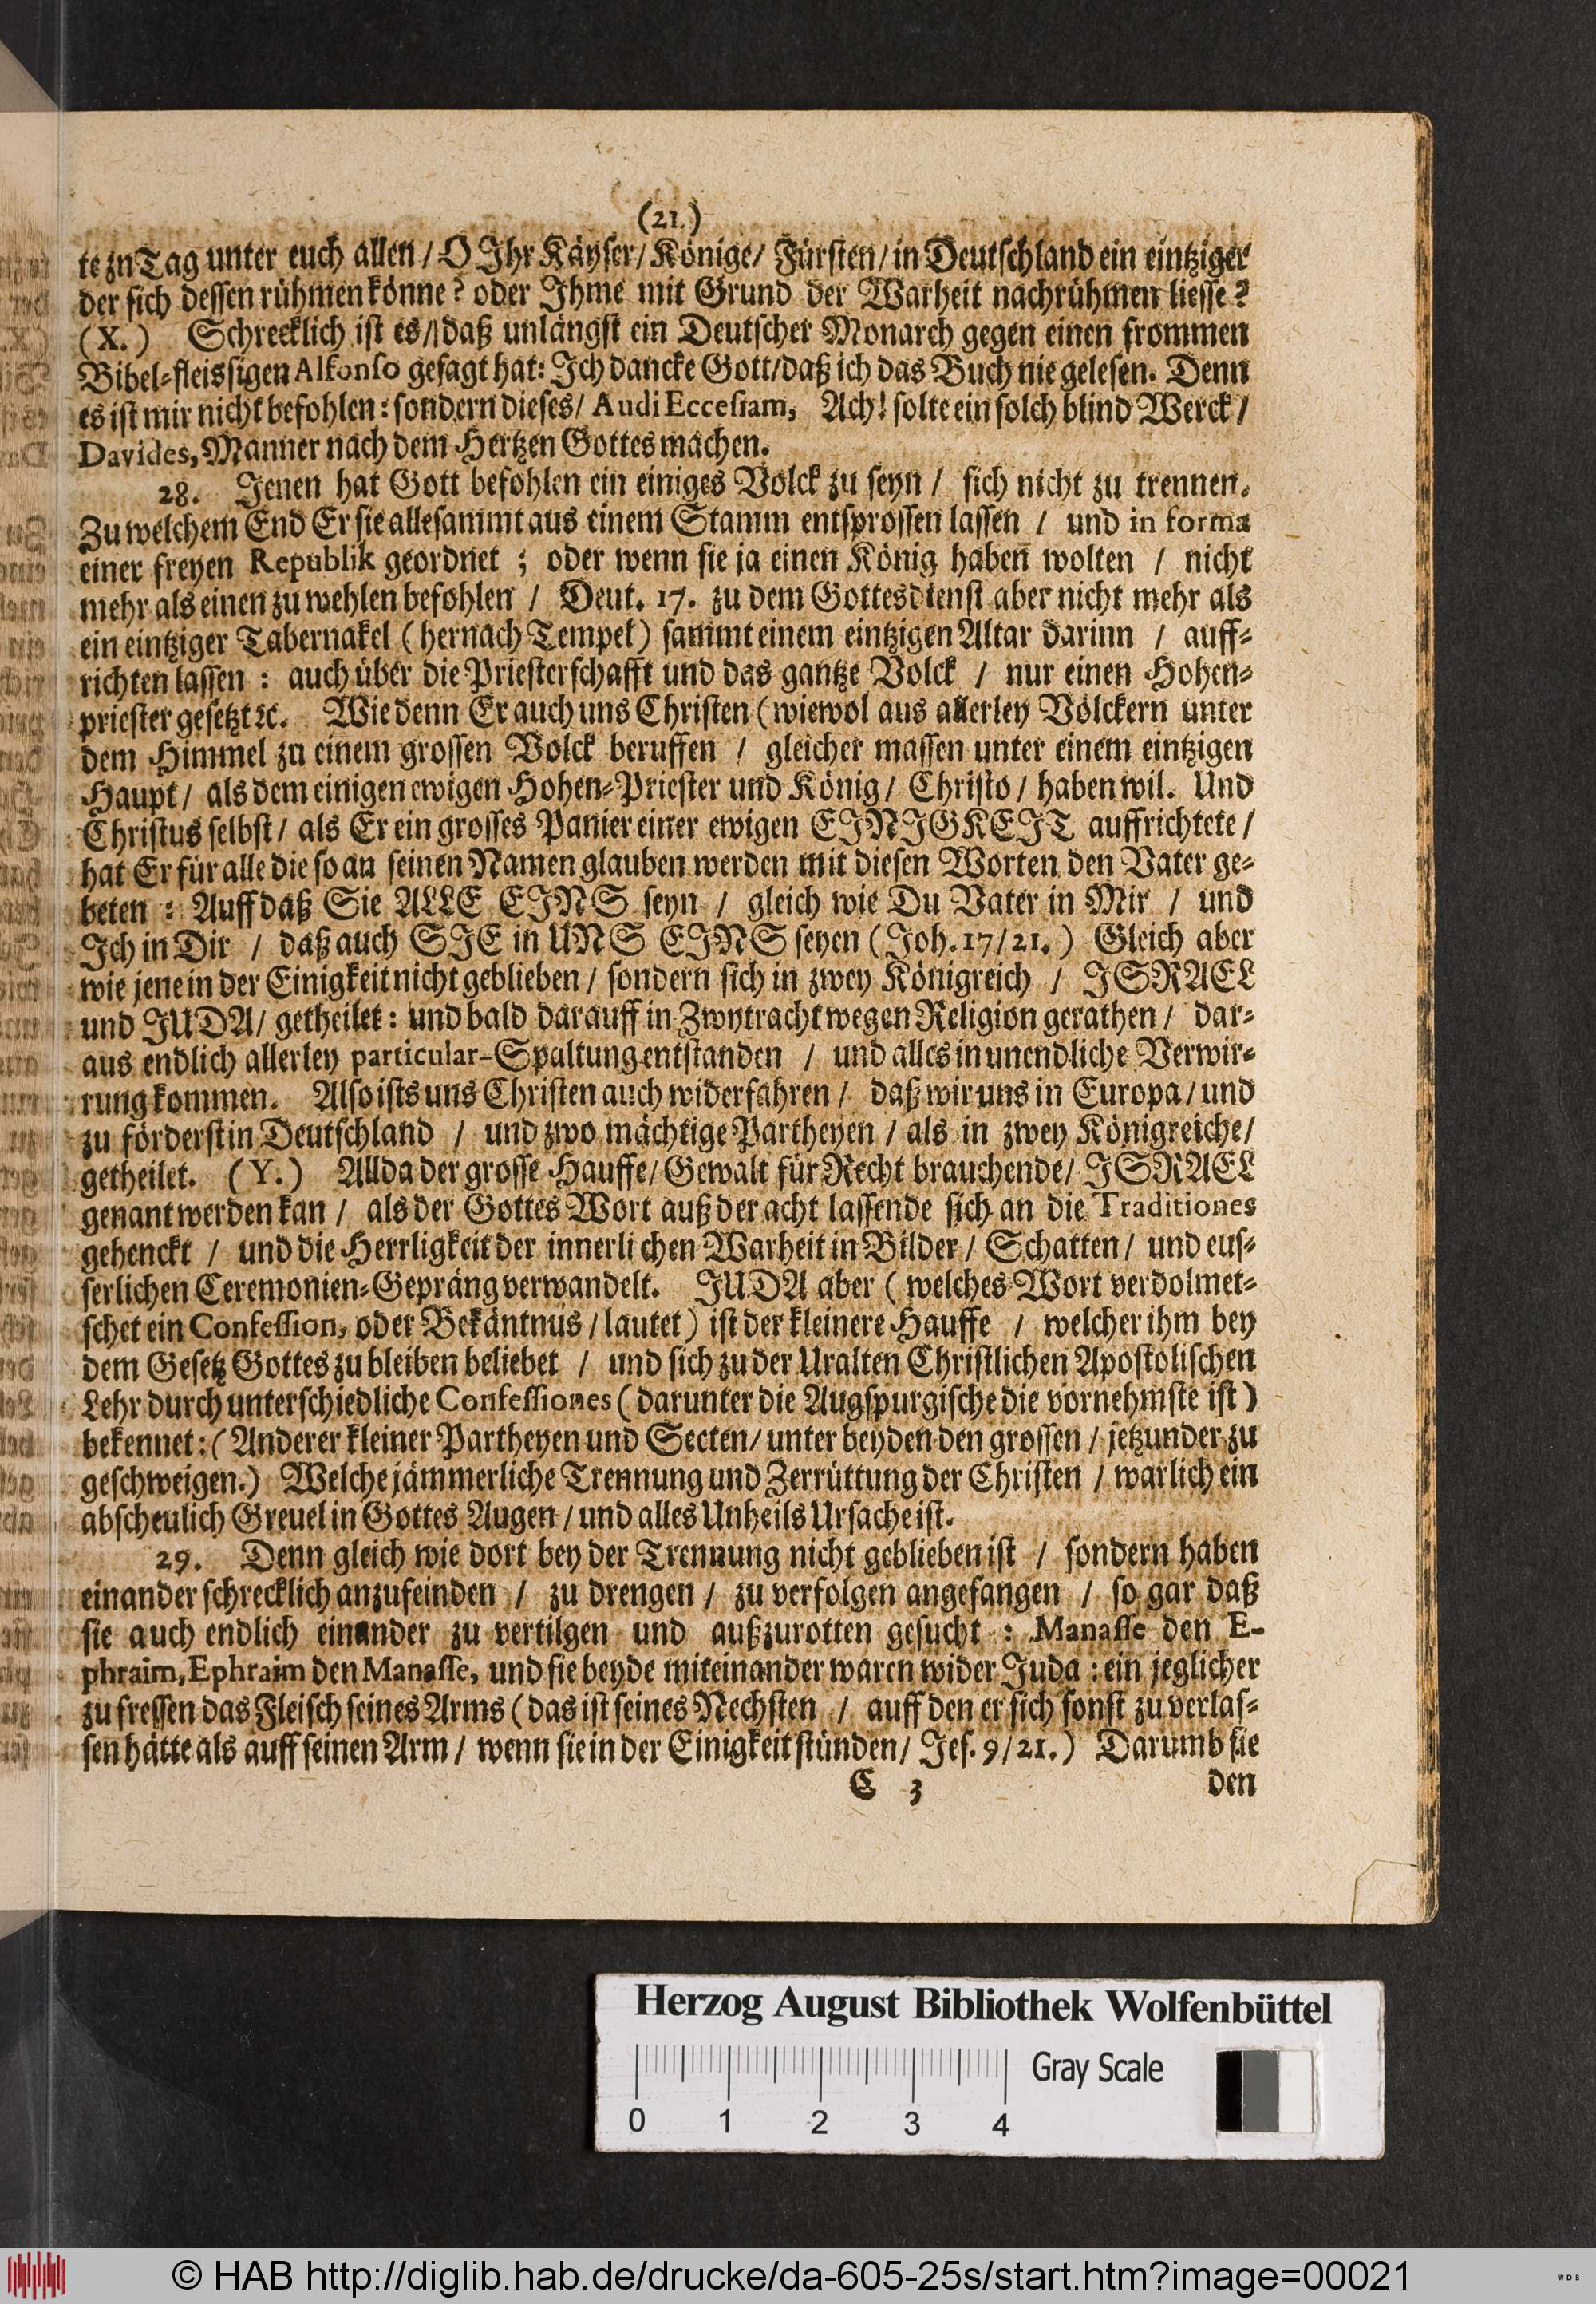 (21.)
te zu Tag unter euch allen / O Ihr Käyser / Könige / Fürsten / in Deutschland ein eintziger
der sich dessen rühmen könne? oder Ihme mit Grund der Warheit nachrühmen liesse?
(X.) Schrecklich ist es / daß unlängst ein Deutscher Monarch gegen einen frommen
Bibel-fleissigen Alfonso gesagt hat: Ich dancke Gott / daß ich das Buch nie gelesen. Denn
es ist mir nicht befohlen: sondern dieses / Audi Eccesiam, Ach! solte ein solch blind Werck /
Davides, Männer nach dem Hertzen Gottes machen.
28. Jenen hat Gott befohlen ein einiges Volck zu seyn / sich nicht zu trennen.
Zu welchem End Er sie allesammt aus einem Stamm entsprossen lassen / und in forma
einer freyen Republik geordnet ; oder wenn sie ja einen König haben wolten / nicht
mehr als einen zu wehlen befohlen / Deut. 17. zu dem Gottesdienst aber nicht mehr als
ein eintziger Tabernakel (hernach Tempel) sammt einem eintzigen Altar darinn / auff-
richten lassen : auch über die Priesterschafft und das gantze Volck / nur einen Hohen-
priester gesetzt ꝛc. Wie denn Er auch uns Christen (wiewol aus allerley Völckern unter
dem Himmel zu einem grossen Volck beruffen / gleicher massen unter einem eintzigen
Haupt / als dem einigen ewigen Hohen-Priester und König / Christo / haben wil. Und
Christus selbst / als Er ein grosses Panier einer ewigen EINIGKEIT auffrichtete /
hat Er für alle die so an seinen Namen glauben werden mit diesen Worten den Vater ge-
beten : Auff daß Sie ALLE EINS seyn / gleich wie Du Vater in Mir / und
Ich in Dir / daß auch SIE in UNS EINS seyen (Joh. 17/21.) Gleich aber
wie jene in der Einigkeit nicht geblieben / sondern sich in zwey Königreich / ISRAEL
und JUDA / getheilet : und bald darauff in Zwytracht wegen Religion gerathen / dar-
aus endlich allerley particular-Spaltung entstanden / und alles in unendliche Verwir-
rung kommen. Also ists uns Christen auch widerfahren / daß wir uns in Europa / und
zu förderst in Deutschland / und zwo mächtige Partheyen / als in zwey Königreiche /
getheilet. (Y.) Allda der grosse Hauffe / Gewalt für Recht brauchende / ISRAEL
genant werden kan / als der Gottes Wort auß der acht lassende sich an die Traditiones
gehenckt / und die Herrligkeit der innerlichen Warheit in Bilder / Schatten / und eus-
serlichen Ceremonien-Gepräng verwandelt. JUDA aber (welches Wort verdolmet-
schet ein Confession, oder Bekäntnüs / lautet) ist der kleinere Hauffe / welcher ihm bey
dem Gesetz Gottes zu bleiben beliebet / und sich zu der Uralten Christlichen Apostolischen
Lehr durch unterschiedliche Confessiones (darunter die Augspurgische die vornehmste ist)
bekennet : (Anderer kleiner Partheyen und Secten / unter beyden den grossen / jetzunder zu
geschweigen.) Welche jämmerliche Trennung und Zerrüttung der Christen / warlich ein
abscheulich Greuel in Gottes Augen / und alles Unheils Ursache ist.
29. Denn gleich wie dort bey der Trennung nicht geblieben ist / sondern haben
einander schrecklich anzufeinden / zu drengen / zu verfolgen angefangen / so gar daß
sie auch endlich einander zu vertilgen und außzurotten gesucht : Manasse den E-
phraim, Ephraim den Manasse, und sie beyde miteinander waren wider Juda : ein jeglicher
zu fressen das Fleisch seines Arms (das ist seines Nechsten / auff den er sich sonst zu verlas-
sen hätte als auff seinen Arm / wenn sie in der Einigkeit stünden / Jes. 9/21.) Darumb sie
C 3 den
Herzog August Bibliothek Wolfenbüttel
Gray Scale
0 1 2 3 4
© HAB http://diglib.hab.de/drucke/da-605-25s/start.htm?image=00021
WDB